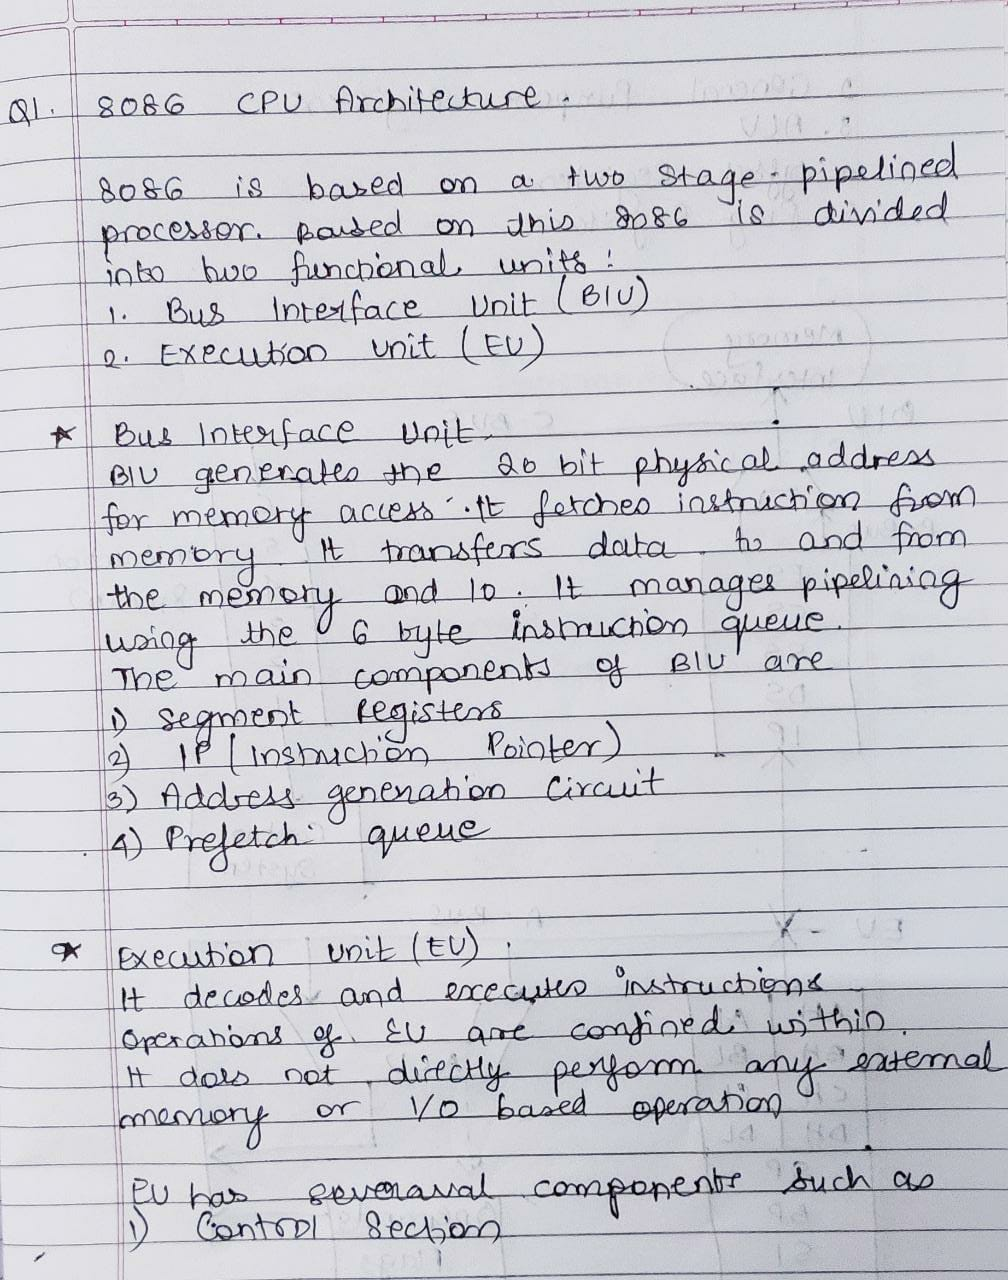 Q1. 8086 CPU Architecture.
8086 is based on a two stage pipelined
processor. Based on this 8086 is divided
into two functional units:
1. Bus Interface Unit (BIU)
2. Execution unit (EU)
* Bus Interface Unit
BIU generates the 20 bit physical address
for memory access. It fetches instruction from
memory. It transfers data to and from
the memory and IO. It manages pipelining
using the 6 byte instruction queue.
The main components of BIU are
1) Segment registers
2) IP (Instruction Pointer)
3) Address generation circuit
4) Prefetch queue
* Execution Unit (EU).
It decodes and executes instructions
Operations of EU are confined within.
It does not directly perform any external
memory or I/O based operation
EU has severaval components such as
1) Control Section